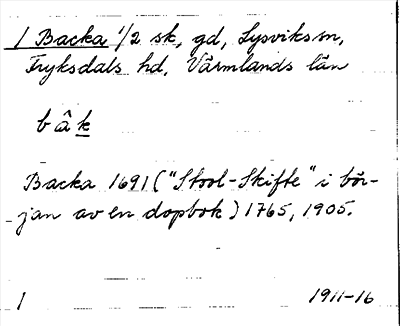 1 Backa 1/2 sk, gd, Lysviks sn,
Fryksdals hd, Värmlands län
bâk
Backa 1691 ("Stool-Skifte" i bör-
jan av en dopbok) 1765, 1905.
1 1911-16